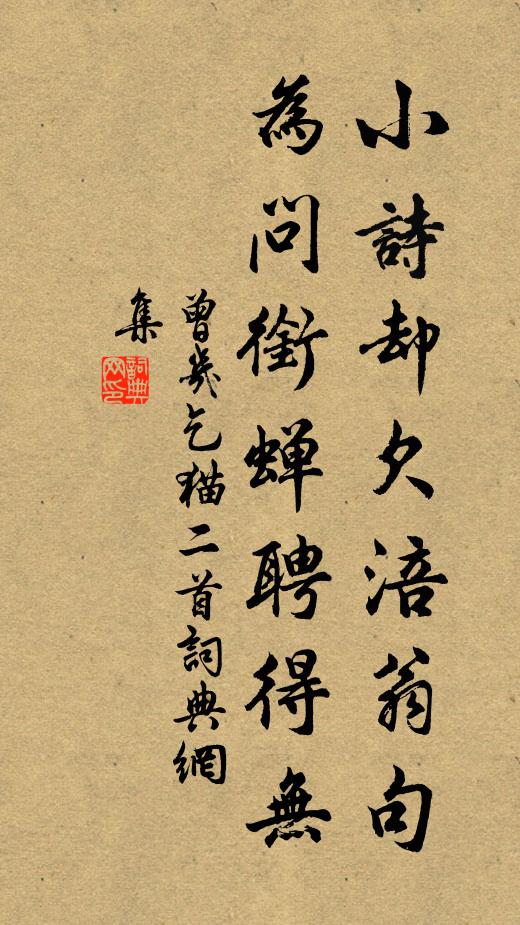 小詩却欠涪翁句
為問銜蟬聘得無
曾幾乞猫二首詞典網
集
詞典网印